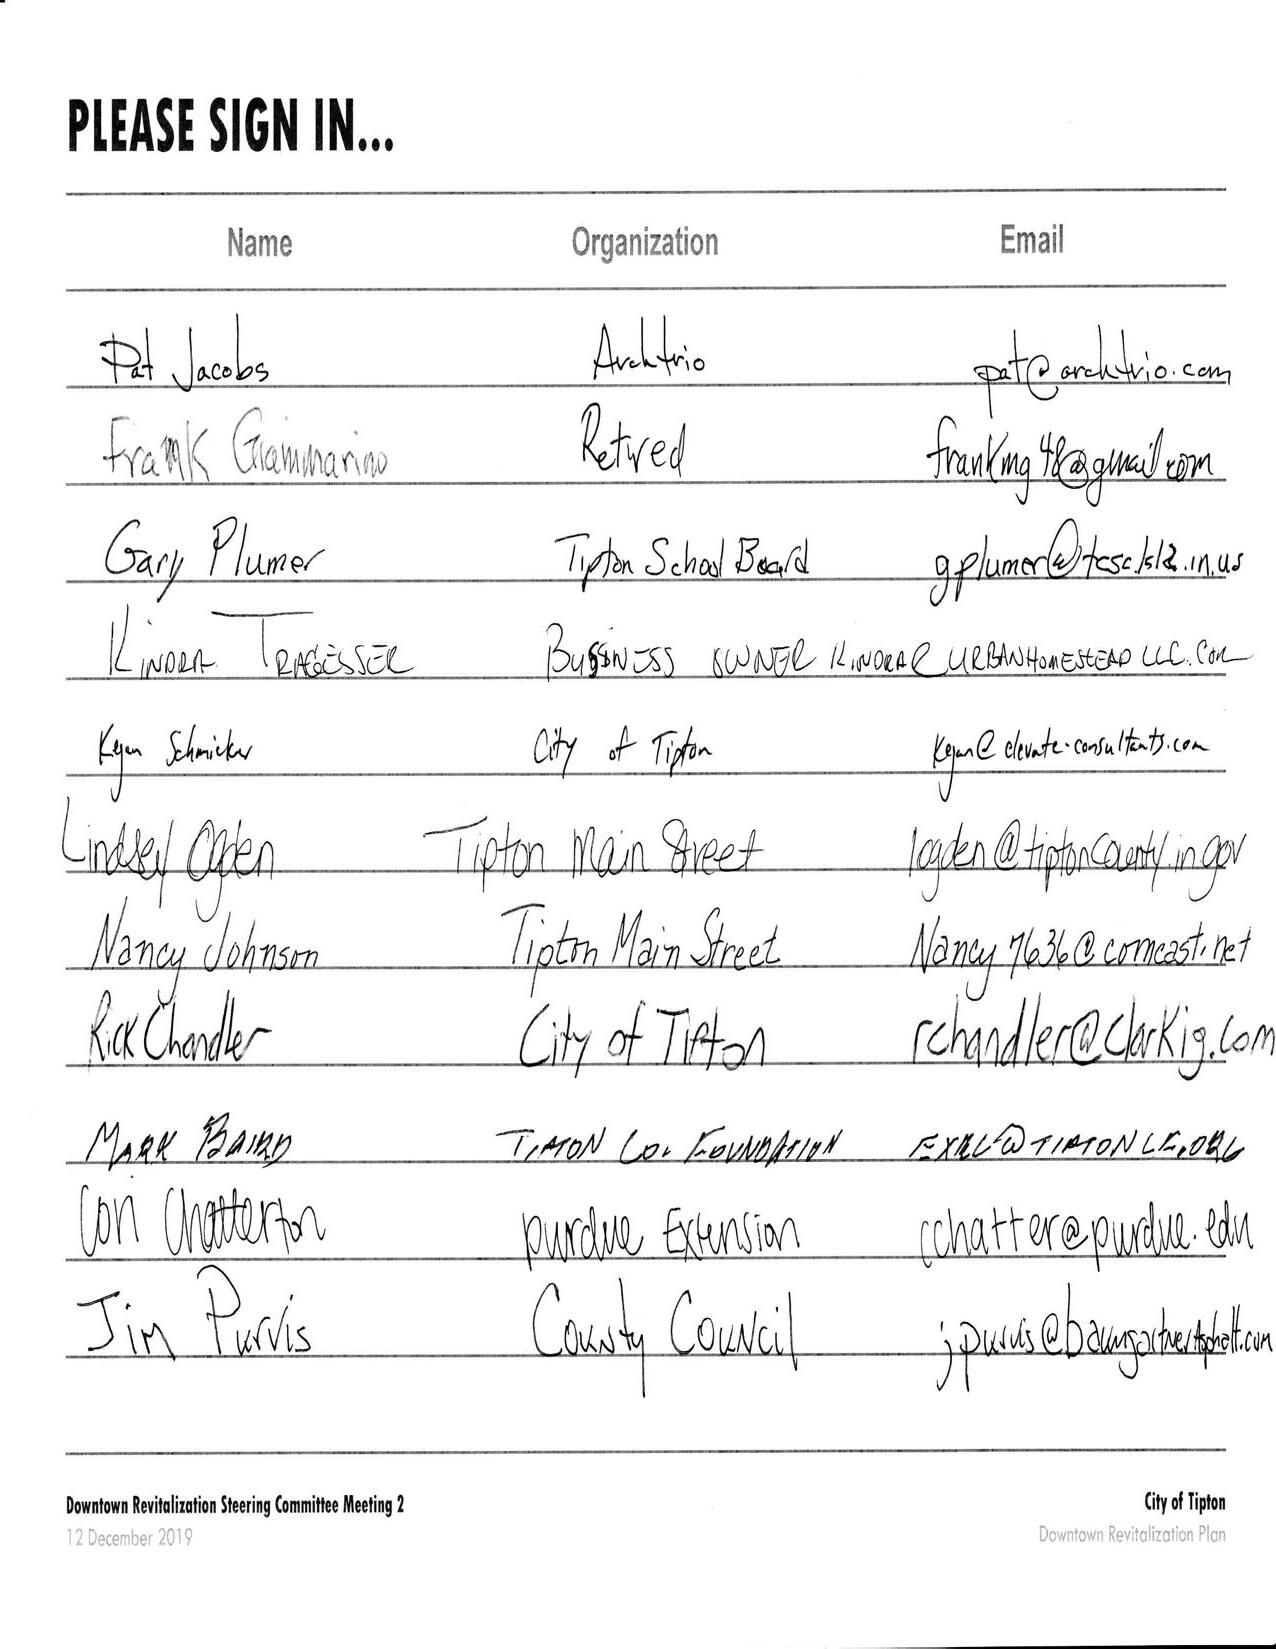 PLEASE SIGN IN...
Name Organization Email
Pat Jacobs Archtrio pat@archtrio.com
Frank Giammarino Retired frankmg48@gmail.com
Gary Plumer Tipton School Board gplumer@tcsc.k12.in.us
KINDRA TRAGESSER BUSINESS OWNER KINDRA@URBANHOMESTEADLLC.COM
Kegan Schmicker City of Tipton Kegan@elevate-consultants.com
Lindsey Ogden Tipton Main Street logden@tiptoncounty.in.gov
Nancy Johnson Tipton Main Street Nancy7636@comcast.net
Rick Chandler City of Tipton rchandler@clarkig.com
MARK BAIRD TIPTON CO. FOUNDATION
Cori Chatterton purdue Extension cchatter@purdue.edu
Jim Purvis County Council jpurvis@baumgartnerAsphalt.com
Downtown Revitalization Steering Committee Meeting 2 City of Tipton
12 December 2019 Downtown Revitalization Plan